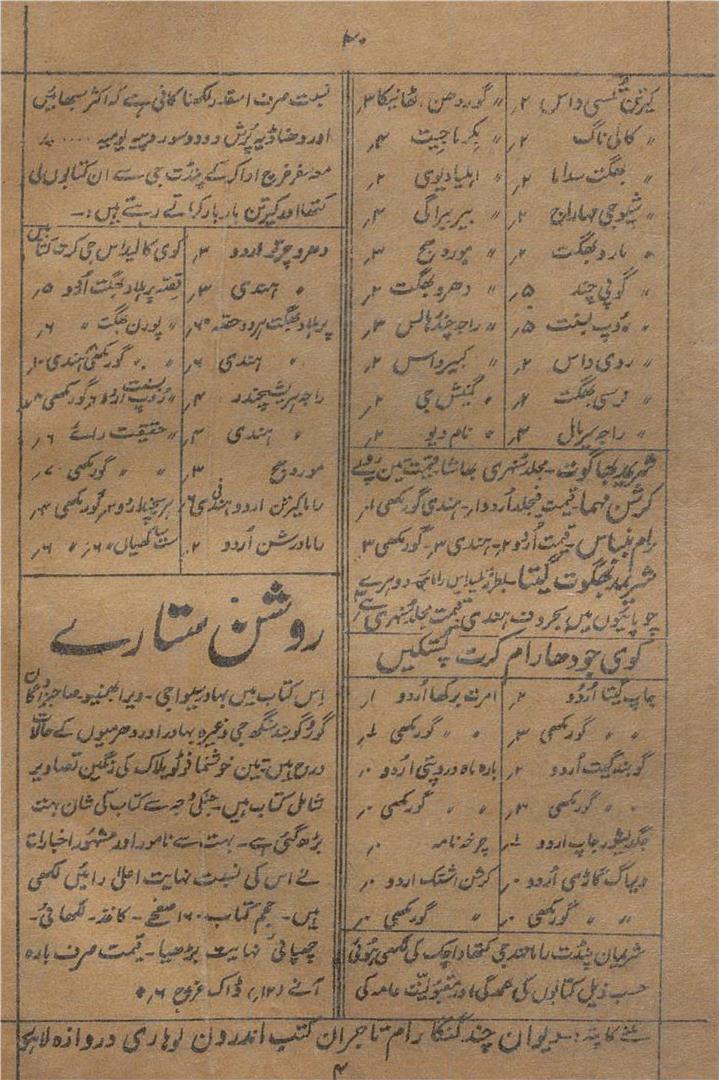 ۴۰
کیرتن تلسی داس ۲؍ " گوردھن ٹھانیکا ۳؍
" کالی ناگ ۲؍ " بکرماجیت ۳؍
" بھگت سداما ۲؍ " اہلیا دیوی ۲؍
" شیو جی مہاراج ۲؍ " بیر بیراگی ۳؍
" نارو بھگت ۲؍ " موردھج ۳؍
" گوپی چند ۵؍ " دھرو بھگت ۲؍
" روپ بسنت ۵؍ " راجہ چندرہاس ۳؍
" روی داس ۲؍ " کبیر داس ۲؍
" نرسی بھگت ۲؍ " گنیش جی ۲؍
" راجہ بیربال ۳؍ " نام دیو ۲؍
شریمد بھاگوت - مجلد سنہری بھاشا قیمت تین روپے
کرشن مہما - قیمت مجلد اردو ۱؍ - ہندی گورمکھی ۱؍
رام بنباس - قیمت اُردو ۲؍ - ہندی ۳؍ - گورمکھی ۳؍
شریمد بھگوت گیتا - بطرز تلسی راماین دوہرے
چوپائیوں میں بحروف ہندی قیمت مجلد سنہری
کوی جودھا رام کرت پستکیں
جاپ گیتا اُردو ۲؍ امرت برکھا اُردو ۱؍
" " گورمکھی ۳؍ " " گورمکھی
گوبند گیت اُردو ۲؍ بارہ ماہ دروپتی اُردو ۱؍
" " گورمکھی ۳؍ " " گورمکھی ۱؍
جاپ اردو چرخہ نامہ ۱؍
ویراگ گاڑھی اُردو ۱؍ کرشن اشٹک اردو ۱؍
" " گورمکھی ۱؍ " گورمکھی ۱؍
شریمان پنڈت رامانند جی کتھا واچک کی لکھی ہوئی
حسب ذیل کتابوں کی عمدگی اور مقبولیت عامہ کی
نسبت صرف اسقدر لکھنا کافی ہے کہ اکثر سبھائیں
اور دو دو سو روپیہ یومیہ .... پر
معہ سفر خرچ ادا کر کے پنڈت جی سے ان کتابوں کی
کتھا اور کیرتن بار بار کراتے رہتے ہیں :-
دھرو چرتر اردو ۳؍ کوی کالیداس جی کرت کتابیں
" ہندی ۳؍ قصہ پرہلاد بھگت اُردو ۵؍
پرہلاد بھگت ہر دو حصہ ۶؍ " پورن بھگت " ۶؍
" ہندی ۶؍ " " گورمکھی ہندی ۱۰؍
راجہ ہریشچندر ۴؍ " روپ بسنت اردو ۶؍ گورمکھی
" ہندی ۴؍ " حقیقت رائے ۶؍
موردھج ۳؍ " " گورمکھی ۷؍
راماکیرتن اردو ہندی فی ۶؍ ہریچند اردو ۲؍ گورمکھی ۴؍
راما درشن اُردو ۲؍ ست ساکھیاں " ۶؍ " ۶؍
روشن ستارے
اِس کتاب میں بہادر سیوا جی - ویر ابھمنیو - صاحبزادگان
گورو گوبند سنگھ جی وغیرہ بہادر اور دھرمیوں کے حالات
درج ہیں - تین خوشنما فوٹو بلاک کی رنگین تصاویر
شامل کتاب ہیں - جنکی وجہ سے کتاب کی شان بہت
بڑھ گئی ہے - بہت سے نامور اور مشہور اخبارات
نے اس کی نسبت نہایت اعلیٰ رائیں لکھی
ہیں - حجم کتاب ۱۶۰ صفحے - کاغذ - لکھائی -
چھپائی نہایت بڑھیا - قیمت صرف بارہ
آنے (۱۲؍) ڈاک خرچ ۶؍ *
ملنے کا پتہ :- دیوان چند گنگا رام تاجران کتب اندرون لوہاری دروازہ لاہور
۴